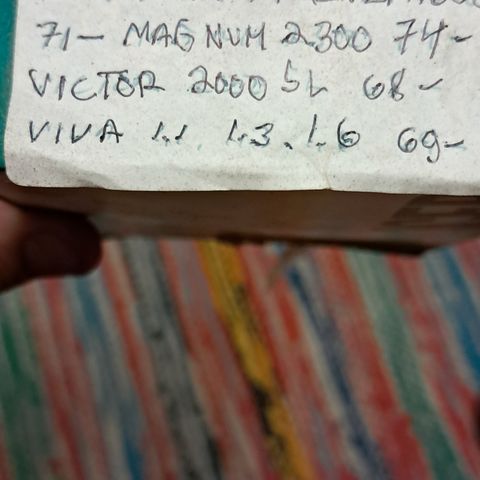 71- MAGNUM 2300 74-
VICTOR 2000 SL 68-
VIVA 1.1 1.3. 1.6 69-